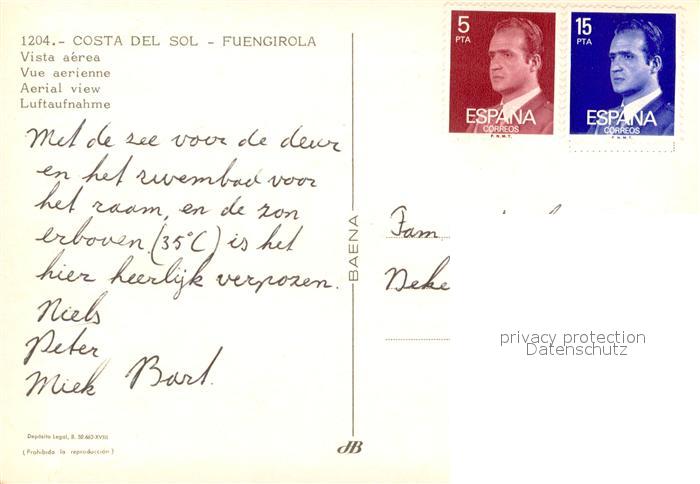 1204.- COSTA DEL SOL - FUENGIROLA
Vista aérea
Vue aerienne
Aerial view
Luftaufnahme
Met de zee voor de deur
en het zwembad voor
het raam, en de zon
erboven (35°C) is het
hier heerlijk verpozen.
Niels
Peter
Miek Bart.
Depósito Legal, B. 50.662-XVIII
(Prohibida la reproducción)
BAENA
JB
5
PTA
ESPAÑA
CORREOS
F.N.M.T.
15
PTA
ESPAÑA
CORREOS
F.N.M.T.
Fam
privacy protection
Datenschutz